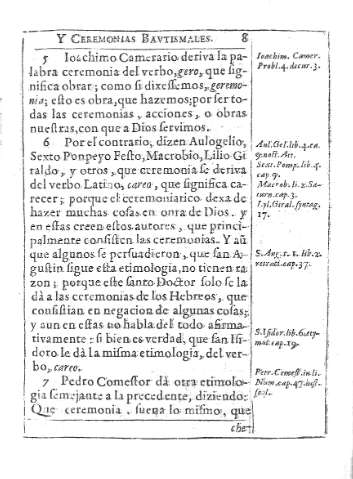 Y CEREMONIAS BAVTISMALES. 8
5 Ioachimo Camerario deriva la pa-
labra ceremonia del verbo, gero, que sig-
nifica obrar; como si dixessemos, geremo-
nia; esto es obra, que hazemos; por ser to-
das las ceremonias, acciones, o obras
nuestras, con que a Dios servimos.
6 Por el contrario, dizen Aulogelio,
Sexto Ponpeyo Festo, Macrobio, Lilio Gi-
raldo, y otros, que ceremonia se deriva
del verbo Latino, careo, que significa ca-
recer; porque el ceremoniatico dexa de
hazer muchas cosas en onra de Dios. y
en estas creen estos autores, que princi-
palmente consisten las ceremonias. Y aũ
que algunos se persuadieron, que san A-
gustin sigue esta etimologia, no tienen ra
zon; porque este santo Doctor solo se la
dà a las ceremonias de los Hebreos, que
consistian en negacion de algunas cosas;
y aun en estas no habla del todo afirma-
tivamente: si bien es verdad, que san Isi-
doro le dà la misma etimologia, del ver-
bo, careo.
7 Pedro Comestor dà otra etimolo-
gia semejante a la precedente, diziendo:
Que ceremonia, suena lo mismo, que
che-
Ioachim. Camer.
Probl. 4. decur. 3.
Aul. Gel. lib. 4. ca.
9. noct. Att.
Sext. Pomp. lib. 3.
cap. 9.
Macrob. li. 2. Sa-
turn. cap. 3.
Lyl. Giral. syntag.
17.
S. Aug. t. 1. lib. 2.
retract. cap. 37.
S. Isidor. lib. 6. ety-
mol. cap. 19.
Petr. Comest. in li.
Num. cap. 47. hist.
scol.